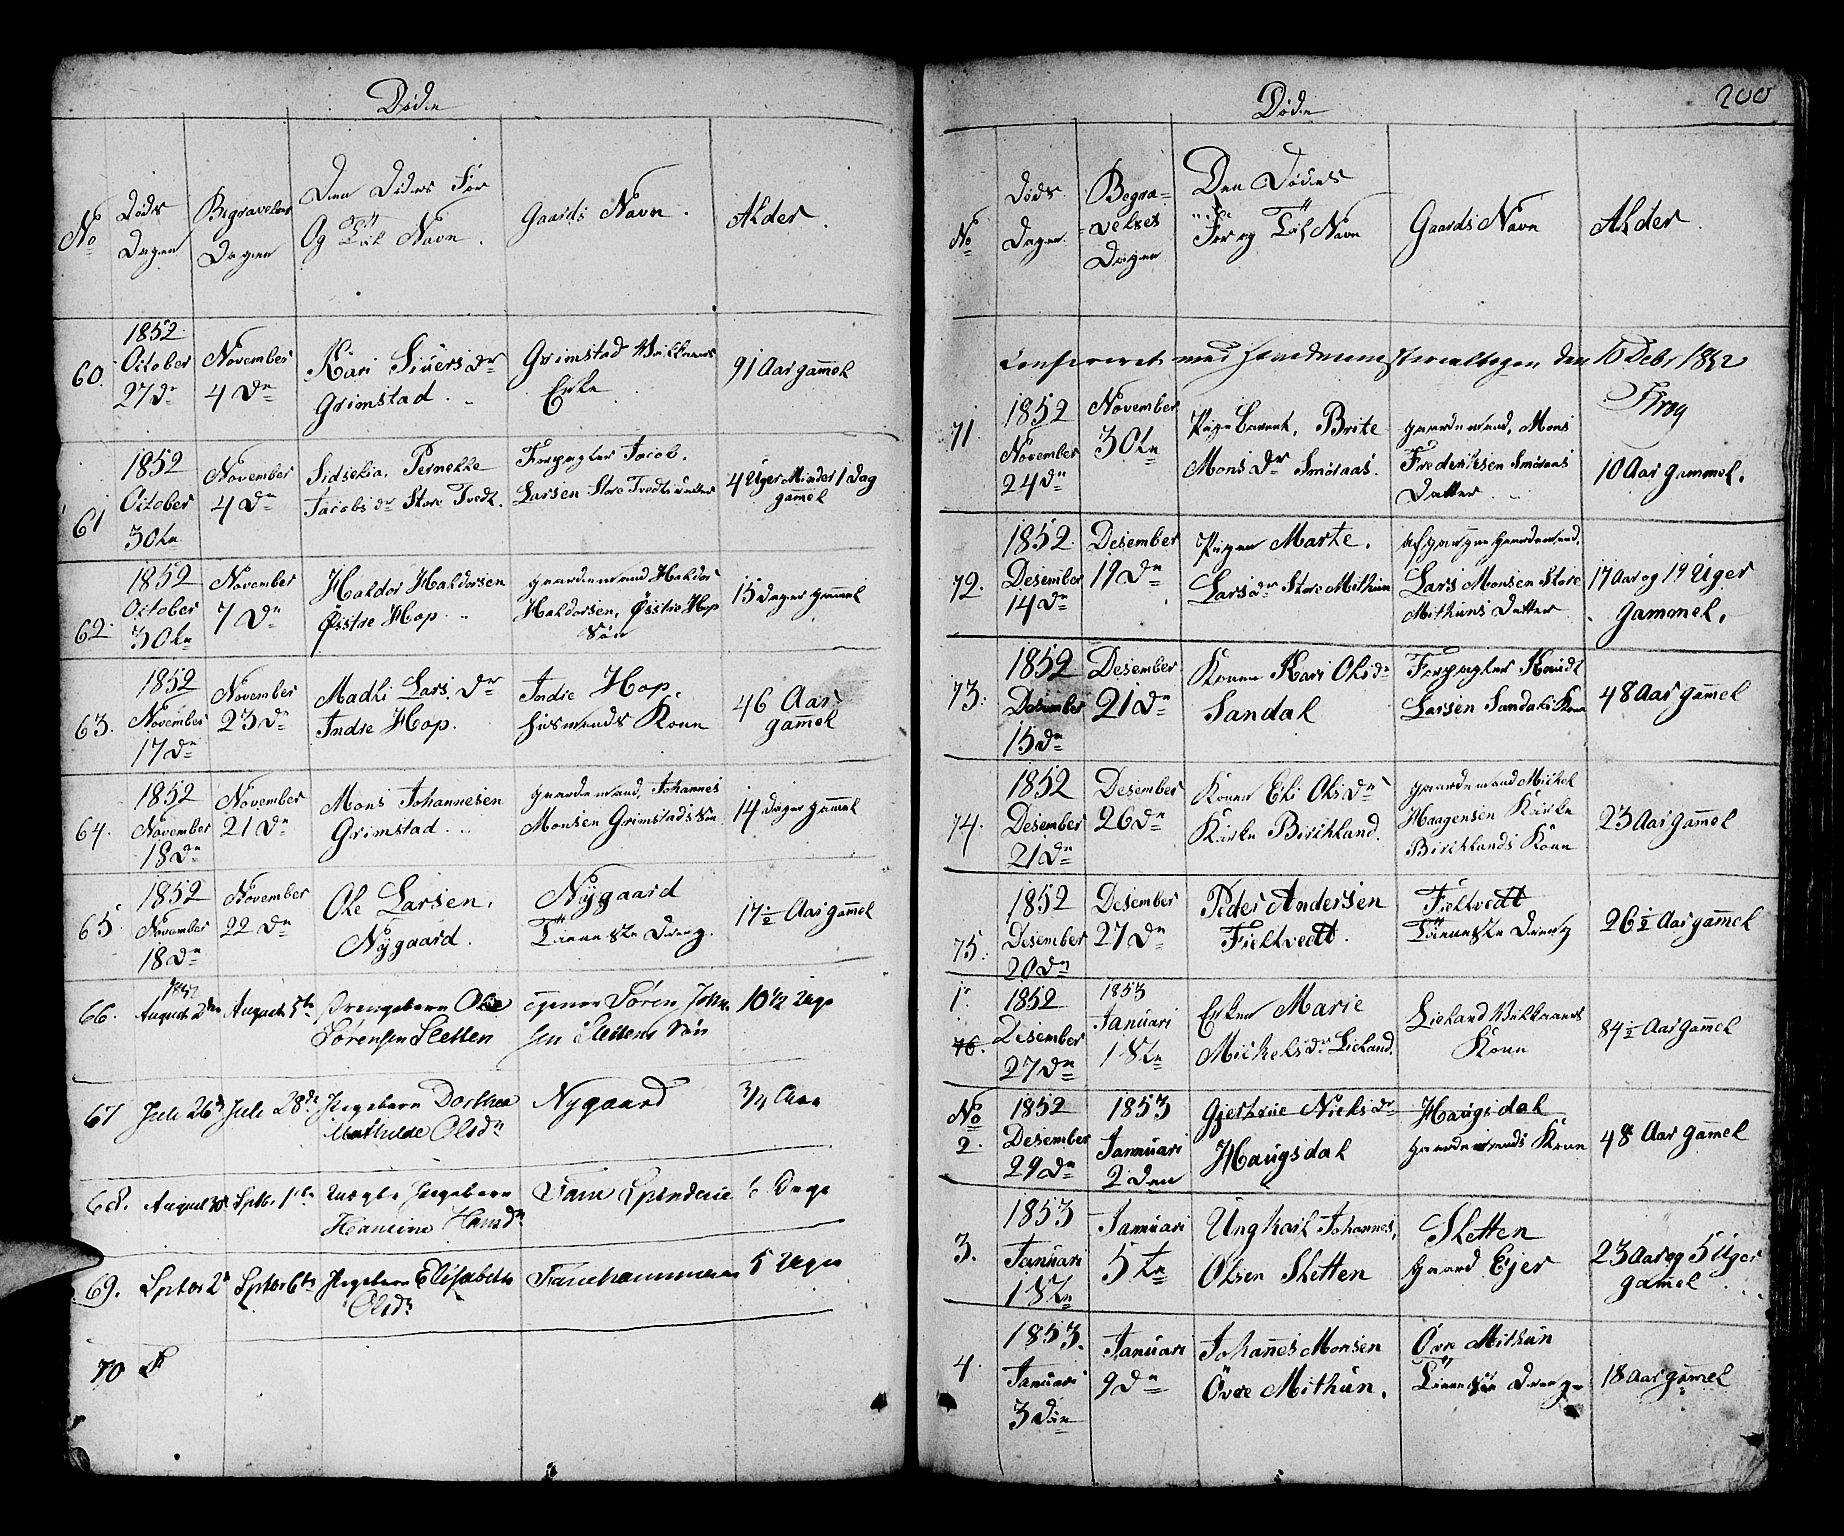 Døde
No
Døds
Dagen
Begravelses
Dagen
Den Dødes For
Og Til Navn.
Gaards Navn.
Alder.
60.
1852
October
27de
November
4de
Kari Siversdr
Grimstad
Grimstad Vilkaars
Enke
91 Aar gammel
61
1852
October
30te
November
4de
Sidselia, Pernelle
Jacobsdr Store Tvedt.
Forpagter Jacob
Larsen Store Tvedts datter
4 Uger Minder 1 Dag
gammel
62.
1852
October
30te
November
7de
Haldor Haldorsen
Østre Hop
gaardemand Haldor
Haldorsen, Østre Hop
Søn
15 dager gammel
63.
1852
November
17de
November
23de
Madli Larsdr
Indre Hop.
Indre Hop.
husmands Kone
46 Aar
gammel
64.
1852
November
18de
November
21de
Mons Johannesen
Grimstad
gaardemand, Johannes
Monsen Grimstads Søn
14 dager gammel
65.
1852
November
18de
November
22de
Ole Larsen.
Nygaard.
Nygaard
Tienneste Dreng.
17½ Aar gammel
66.
1852
August 2den
August 5te
Drengebarn Ole
Sørensen Sletten
Søren John
sen Slettens Søn
10½ Uge
67
Juli 26d
Juli 28de
Pigebarn Dorthea
Mathilde Olsdr
Nygaard
3/4 Aar
68.
August 30
Septbr 1ste
Uægte Pigebarn
Hansine Hansdr
Fane Spinderie
6 Dage
69.
Septbr 2
Septbr 6te
Pigebarn Elisabeth
Olsdr
Fanehammeren
5 Uger
70
200
Døde
No
Døds
Dagen
Begra-
velses
Dagen
Den Dødes
For og Til Navn
Gaards Navn
Alder.
Confereret med Hovedministerialbogen den 10 Debr 1852
Krog
71.
1852
November
24de
November
30te
Pigebarnet, Brite
Monsdr Smøraas.
gaardemand, Mons
Frederiksen Smøraas
Datter
10 Aar gammel.
72.
1852
Desember
14de
Desember
19de
Pigen Marte.
Larsdr Store Mithun
afgangne gaardemand,
Lars Monsen Store
Mithuns Datter
17 Aar og 19 Uger
gammel.
73.
1852
Desember
15de
Desember
21de
Konen Kari Olsdr
Sandal
Forpagter Knudt
Larsen Sandals Kone
48 Aar gammel
74.
1852
Desember
21de
Desember
26de
Konen Eli Olsdr
Kirke Birchland.
gaardemand Mickel
Haagensen Kirke
Birchlands Kone
23 Aar gammel
75.
1852
Desember
20de
Desember
27de
Peder Andersen
Fieltvedt.
Fieltvedt
Tienneste Dreng
26½ Aar gammel
1.
76.
1852
Desember
27de
1853
Januari
1ste
Enken Marie
Mickelsdr Lieland.
Lieland Vilkaars
Kone
84½ Aar gammel
No
2.
1852
Desember
29de
1853
Januari
2den
Giertrue Nielsdr
Haugsdal
Haugsdal
gaardemands Kone
48 Aar gammel
3.
1853
Januari
1ste
Januari
5te
Ungkarl Johannes,
Olsen Sletten
Sletten
gaard Ejer
23 Aar og 5 Uger
gammel
4.
1853.
Januari
3die
Januari
9de
Johannes Monsen
Övre Mithun.
Övre Mithun
Tienneste Dreng
18 Aar gammel